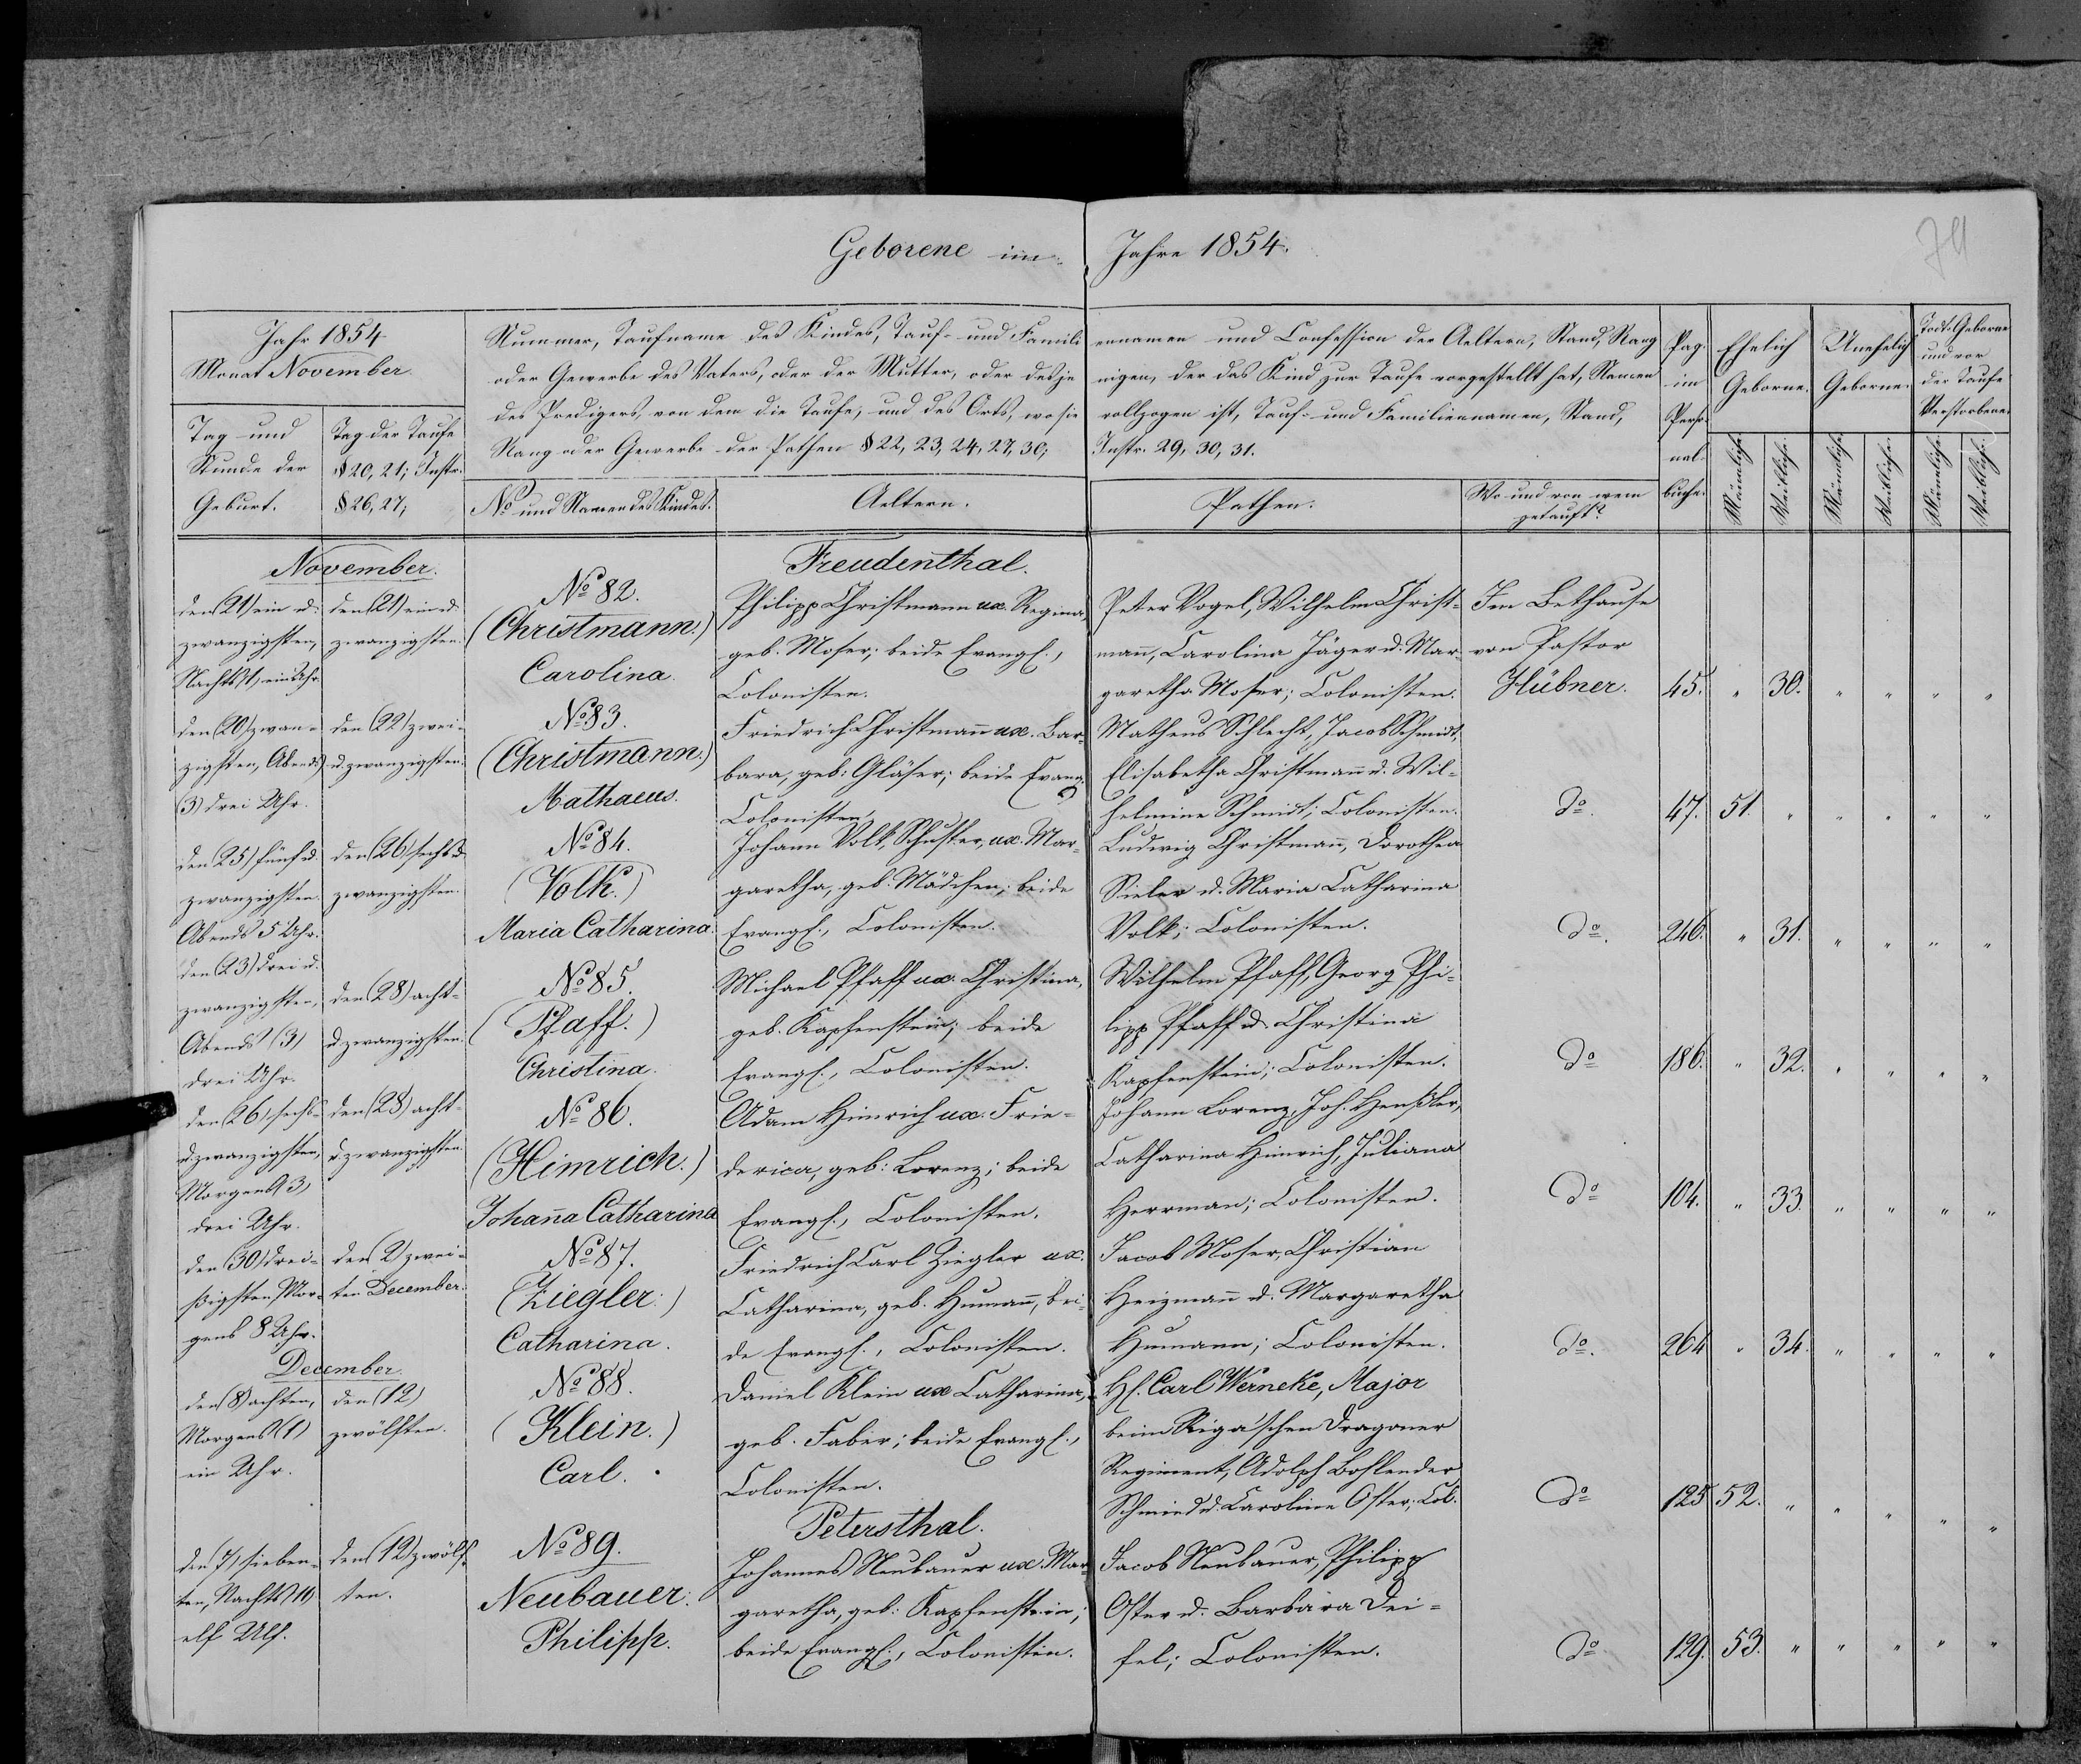 Geborene im Jahre 1854.
Jahr 1854
Monat November.
Tag und
Stunde der
Geburt.
Tag der Taufe
§ 20, 21; Instr.
§ 26, 27;
Nummer, Taufname des Kindes, Tauf- und Famili ennamen und Confession der Aeltern, Stand, Rang
oder Gewerbe des Vaters, oder der Mutter, oder desje nigen, der das Kind zur Taufe vorgestellt hat, Namen
des Predigers, von dem die Taufe, und des Orts, wo sie vollzogen ist, Tauf- und Familiennamen, Stand,
Rang oder Gewerbe der Pathen § 22, 23, 24, 27, 30; Instr. 29, 30, 31.
No und Namen des Kindes.
Aeltern.
Pathen.
Wo und von wem
getauft?
Pag.
im
Perso-
nal-
buche.
Ehelich
Geborne.
Unehelich
Geborne.
Todt-Geborne
und vor
der Taufe
Verstorbene.
Männlich.
Weiblich.
Männlich.
Weiblich.
Männlich.
Weiblich.
November.
Freudenthal.
den (21) ein u.
zwanzigsten,
Nachts (1) ein Uhr.
den (21) ein u.
zwanzigsten.
No 82.
(Christmann.)
Carolina.
Philipp Christmann ux. Regina,
geb. Moser; beide Evangl.,
Colonisten.
Peter Vogel, Wilhelm Christ-
mann, Carolina Jäger u. Mar-
garetha Moser; Colonisten.
Im Bethause
von Pastor
Hübner.
45. " 30. " " " "
den (20) zwan-
zigsten, Abends
(3) drei Uhr.
den (22) zwei-
u. zwanzigsten.
No 83.
(Christmann.)
Mathaeus.
Friedrich Christmann ux. Bar-
bara, geb: Gläser; beide Evang.
Colonisten.
Matheus Schlecht, Jacob Schmidt,
Elisabetha Christmann u. Wil-
helmine Schmidt; Colonisten.
do. 47. 51. " " " " "
den 25) fünf u.
zwanzigsten
Abends 5 Uhr.
den (26) sechs u.
zwanzigsten.
No 84.
(Volk.)
Maria Catharina.
Johann Volk, Schuster, ux. Mar-
garetha, geb. Mädchen; beide
Evangl., Colonisten.
Ludwig Christmann, Dorothea
Sieler u. Maria Catharina
Volk; Colonisten.
do. 246. " 31. " " " "
den (23) drei u.
zwanzigsten,
Abends (3)
drei Uhr.
den (28) acht-
u. zwanzigsten.
No 85.
(Pfaff.)
Christina.
Michael Pfaff ux. Christina,
geb. Kapfenstein; beide
Evangl., Colonisten.
Wilhelm Pfaff, Georg Phi-
lipp Pfaff u. Christina
Kapfenstein; Colonisten.
do 186. " 32. " " " "
den (26) sechs-
u. zwanzigsten,
Morgens (3)
drei Uhr.
den (28) acht-
u. zwanzigsten.
No 86.
(Himrich.)
Johanna Catharina
Adam Himrich ux. Frie-
derica, geb: Lorenz; beide
Evangl., Colonisten.
Johann Lorenz, Joh. Henßler,
Catharina Himrich, Juliana
Herrman; Colonisten.
do 104. " 33. " " " "
den (30) drei-
ßigsten Mor-
gens 8 Uhr.
den 2) zwei-
ten December.
No 87.
(Ziegler.)
Catharina.
Friedrich Carl Ziegler ux.
Catharina, geb. Humann, bei-
de Evangl., Colonisten.
Jacob Moser, Christian
Heizmann u. Margaretha
Humann; Colonisten.
do. 264 " 34. " " " "
December.
den (8) achten,
Morgens (1)
ein Uhr.
den (12)
zwölften.
No 88.
(Klein.)
Carl.
Daniel Klein ux Catharina,
geb. Faber; beide Evangl.,
Colonisten.
H. Carl Werneke, Major
beim Riga'schen Dragoner
Regiment, Adolph Bohlender
Schmied u. Caroline Oster; Col.
do 125 52. " " " " "
Petersthal.
den 7) sieben-
ten, Nachts (11)
elf Uhr.
den (12) zwölf-
ten.
No 89.
Neubauer.
Philipp.
Johannes Neubauer ux. Mar-
garetha, geb: Kapfenstein;
beide Evangl., Colonisten.
Jacob Neubauer, Philipp
Oster u. Barbara Dei-
fel; Colonisten.
do 129. 53. " " " " "